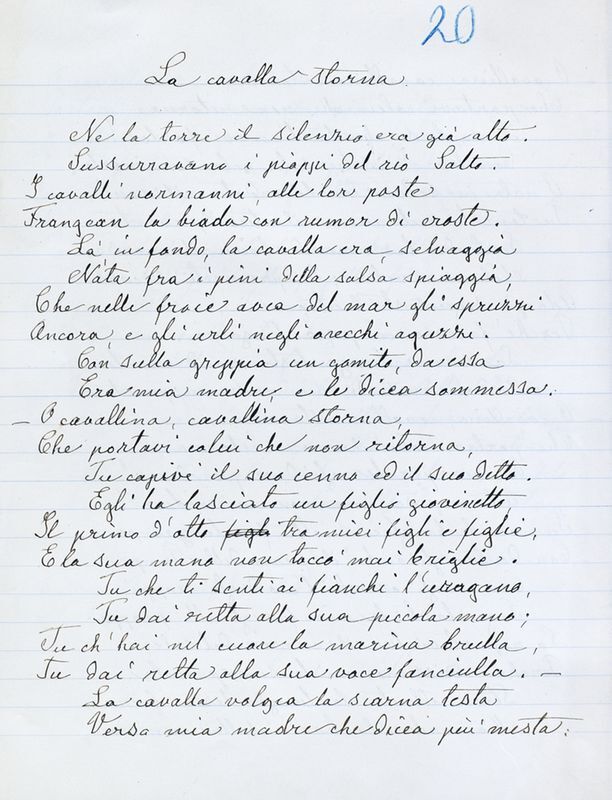 20
La cavalla storna.
Ne la torre il silenzio era già alto.
Sussurravano i pioppi del rio Salto.
I cavalli normanni, alle lor poste
Frangean la biada con rumor di croste.
Là in fondo, la cavalla era, selvaggia
Nata fra i pini della salsa spiaggia,
Che nelle froie avea del mar gli spruzzi
Ancora, e gli urli negli orecchi aguzzi.
Con sulla greppia un gomito, da essa
Era mia madre, e le dicea sommessa:
– O cavallina, cavallina storna,
Che portavi colui che non ritorna,
Tu capivi il suo cenno ed il suo detto.
Egli ha lasciato un figlio giovinetto,
Il primo d'otto figli tra miei figli e figlie,
E la sua mano non toccò mai briglie.
Tu che ti senti ai fianchi l'uragano,
Tu dai retta alla sua piccola mano;
Tu ch'hai nel cuore la marina brulla,
Tu dai retta alla sua voce fanciulla. –
La cavalla volgea la scarna testa
Verso mia madre che dicea più mesta: